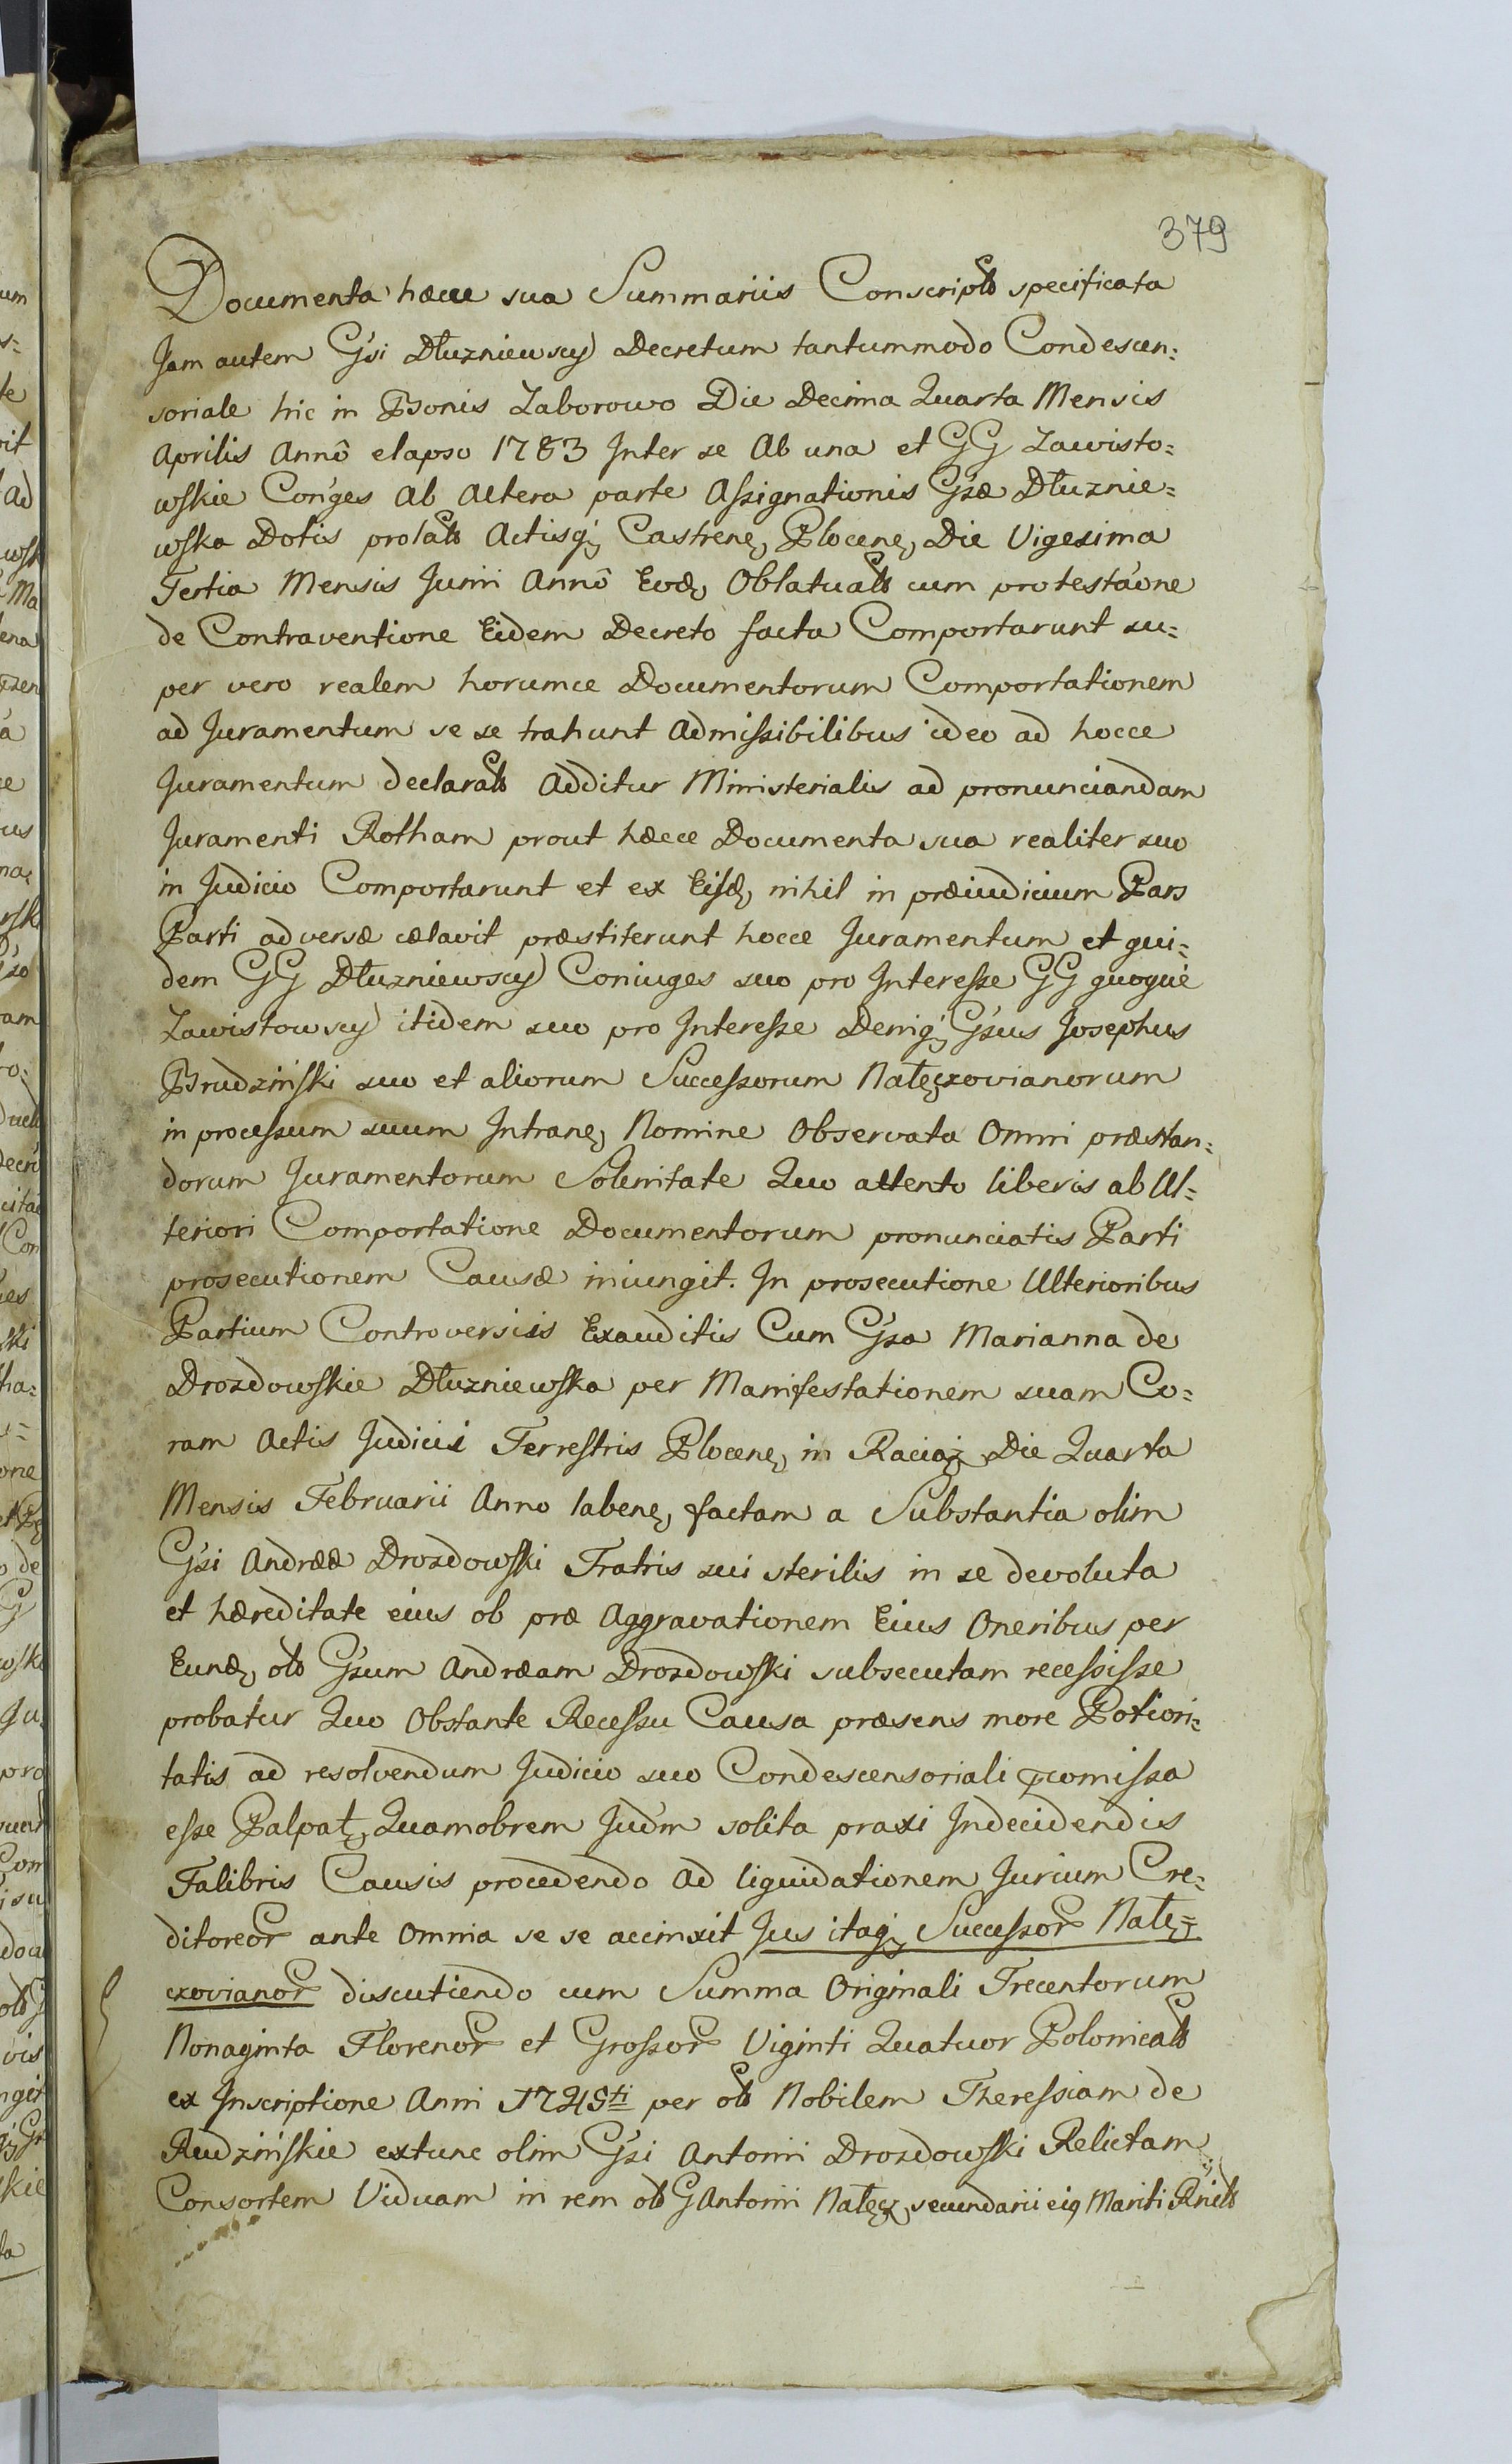 379
Documenta hæcce sua Summariis Conscript specificata
Jam autem Gsi Dłuzniewscy Decretum tantummodo Condescen=
soriale hic in Bonis Zaborowo Die Decima Quarta Mensis
Aprilis Annô elapso 1783 Inter se Ab una et GG Zawisto=
wskie Con'ges Ab Altera parte Assignationis Gsæ Dłuznie=
wska Dotis prolat Actisq; Castren, Plocen, Die Vigesima
Tertia Mensis Junii Annô Eod, Oblatuat cum protestãone
de Contraventione Eidem Decreto facta Comportarunt su=
per vero realem horumce Documentorum Comportationem
ad Juramentum se se trahunt Admissibilibus ideo ad hocce
Juramentum declarat Additur Ministerialis ad pronunciandam
Juramenti Rotham prout hæcce Documenta sua realiter suo
in Judicio Comportarunt et ex Eisd, nihil in præiudicium Pars
Parti adversæ cælavit præstiterunt hocce Juramentum et qui=
dem GG Dłuzniewscy Coniuges suo pro Interesse GG quoque
Zawistowscy itidem suo pro Interesse Deniq; Gsus Josephus
Brudziński suo et aliorum Successorum Natęczovianorum
in processum suum Intran, Nomine Observata Omni præstan=
dorum Juramentorum Solennitate Quo attento liberis ab Ul=
teriori Comportatione Documentorum pronunciatis Parti
prosecutionem Causæ iniungit. In prosecutione Ulterioribus
Partium Controversiis Exauditis Cum Gsa Marianna de
Drozdowskie Dłuzniewska per Manifestationem suam Co=
ram Actis Judicii Terrestris Plocen, in Raciąz Die Quarta
Mensis Februarii Anno laben, factam a Substantia olim
Gsi Andreæ Drozdowski Fratris sui sterilis in se devoluta
et hæreditate eius ob præ Aggravationem Eius Oneribus per
Eund, olb Gsum Andræam Drozdowski subsecutam recessisse
probatur Quo Obstante Recessu Causa præsens more Potiori=
tatis ad resolvendum Judicio suo Condescensoriali commissa
esse Palpat, Quamobrem Jud'm solita praxi Indecidendis
Talibris Causis procedendo ad liquidationem Jurium Cre=
ditoreor ante Omnia se se accinxit Jus itaq; Successor Natę=
czovianor discutiendo cum Summa Originali Trecentorum
Nonaginta Florenor et Grossor Viginti Quatuor Polonicalt
ex Inscriptione Anni 1745ti per olb Nobilem Theressiam de
Rudzińskie extunc olim Gsi Antonii Drozdowski Relictam
Consortem Viduam in rem olb G Antonii Natęcz, secundarii eiq Mariti